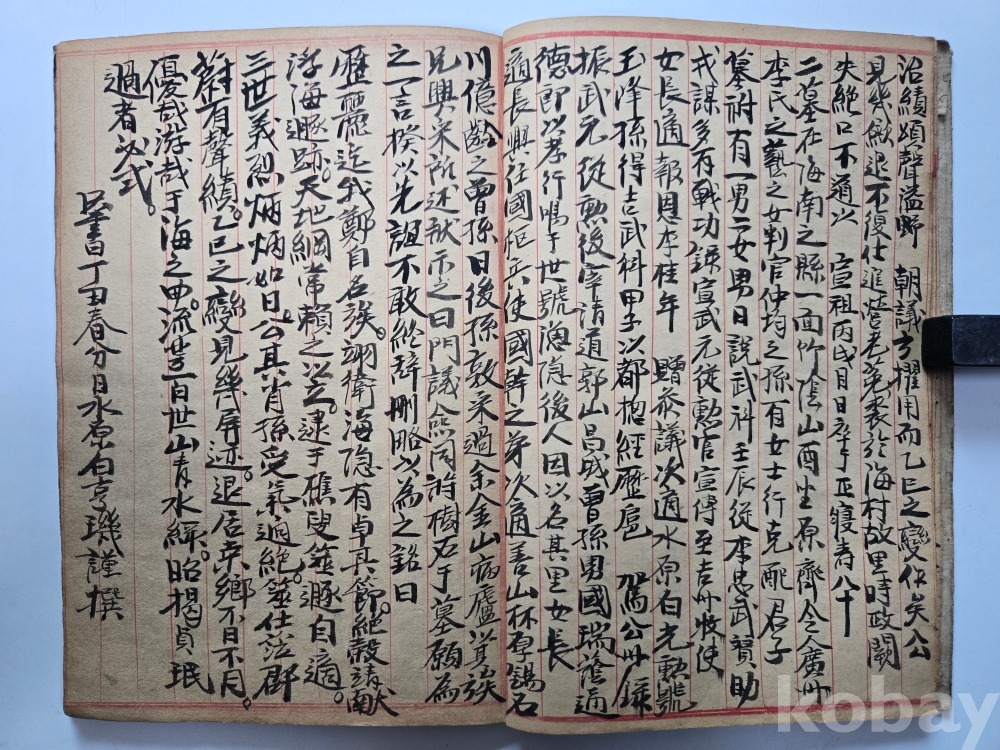 治績頌聲溢野 朝議方擢用而乙巳之變作矣公
見幾斂退不復仕進營老菟裘於海村故里時政闕
失絶口不道以 宣祖丙戌月日卒于正寢壽八十
二墓在海南之縣一面竹陰山酉坐原齊令人廣州
李氏之藝之女判官仲均之孫有女士行克配君子
墓祔有一男二女男日說武科壬辰從李忠武贊助
戎謀多有戰功錄宣武元從勳官宣傳至吉州牧使
女長適報恩李桂年 贈參議次適水原白光勳號
玉峰孫得吉武科甲子以都摠經歷扈 駕公州錄
振武元從勳後宰清道郭山昌城曾孫男國瑞澄遁
德郎以孝行鳴于世號漁隱後人因以名其里女長
適長興任國柜兵使國幹之弟次適善山林
川億齡之曾孫日後孫敦采過余金山病廬其族
兄興采所述狀示之曰門議僉同許樹石于墓願為
之一言揆以先誼不敢終辭刪略以為之銘曰
歷麗迄我鄭自名族。翊衛海隱有卓其節。絶穀靖獻
浮海遯跡。天地綱常賴之以立。逮于礁叟筮遯自適。
三世義烈炳炳如日。公其肖孫受氣迥絶。筮仕涖郡
蔚有聲績。乙巳之變見幾屏迹。退居桑鄉不日不月。
優哉游哉于海之曲。流芳百世山青水綠。昭揭貞珉
過者必式。
昰書丁丑春分日水原白亨璣謹撰
kobay